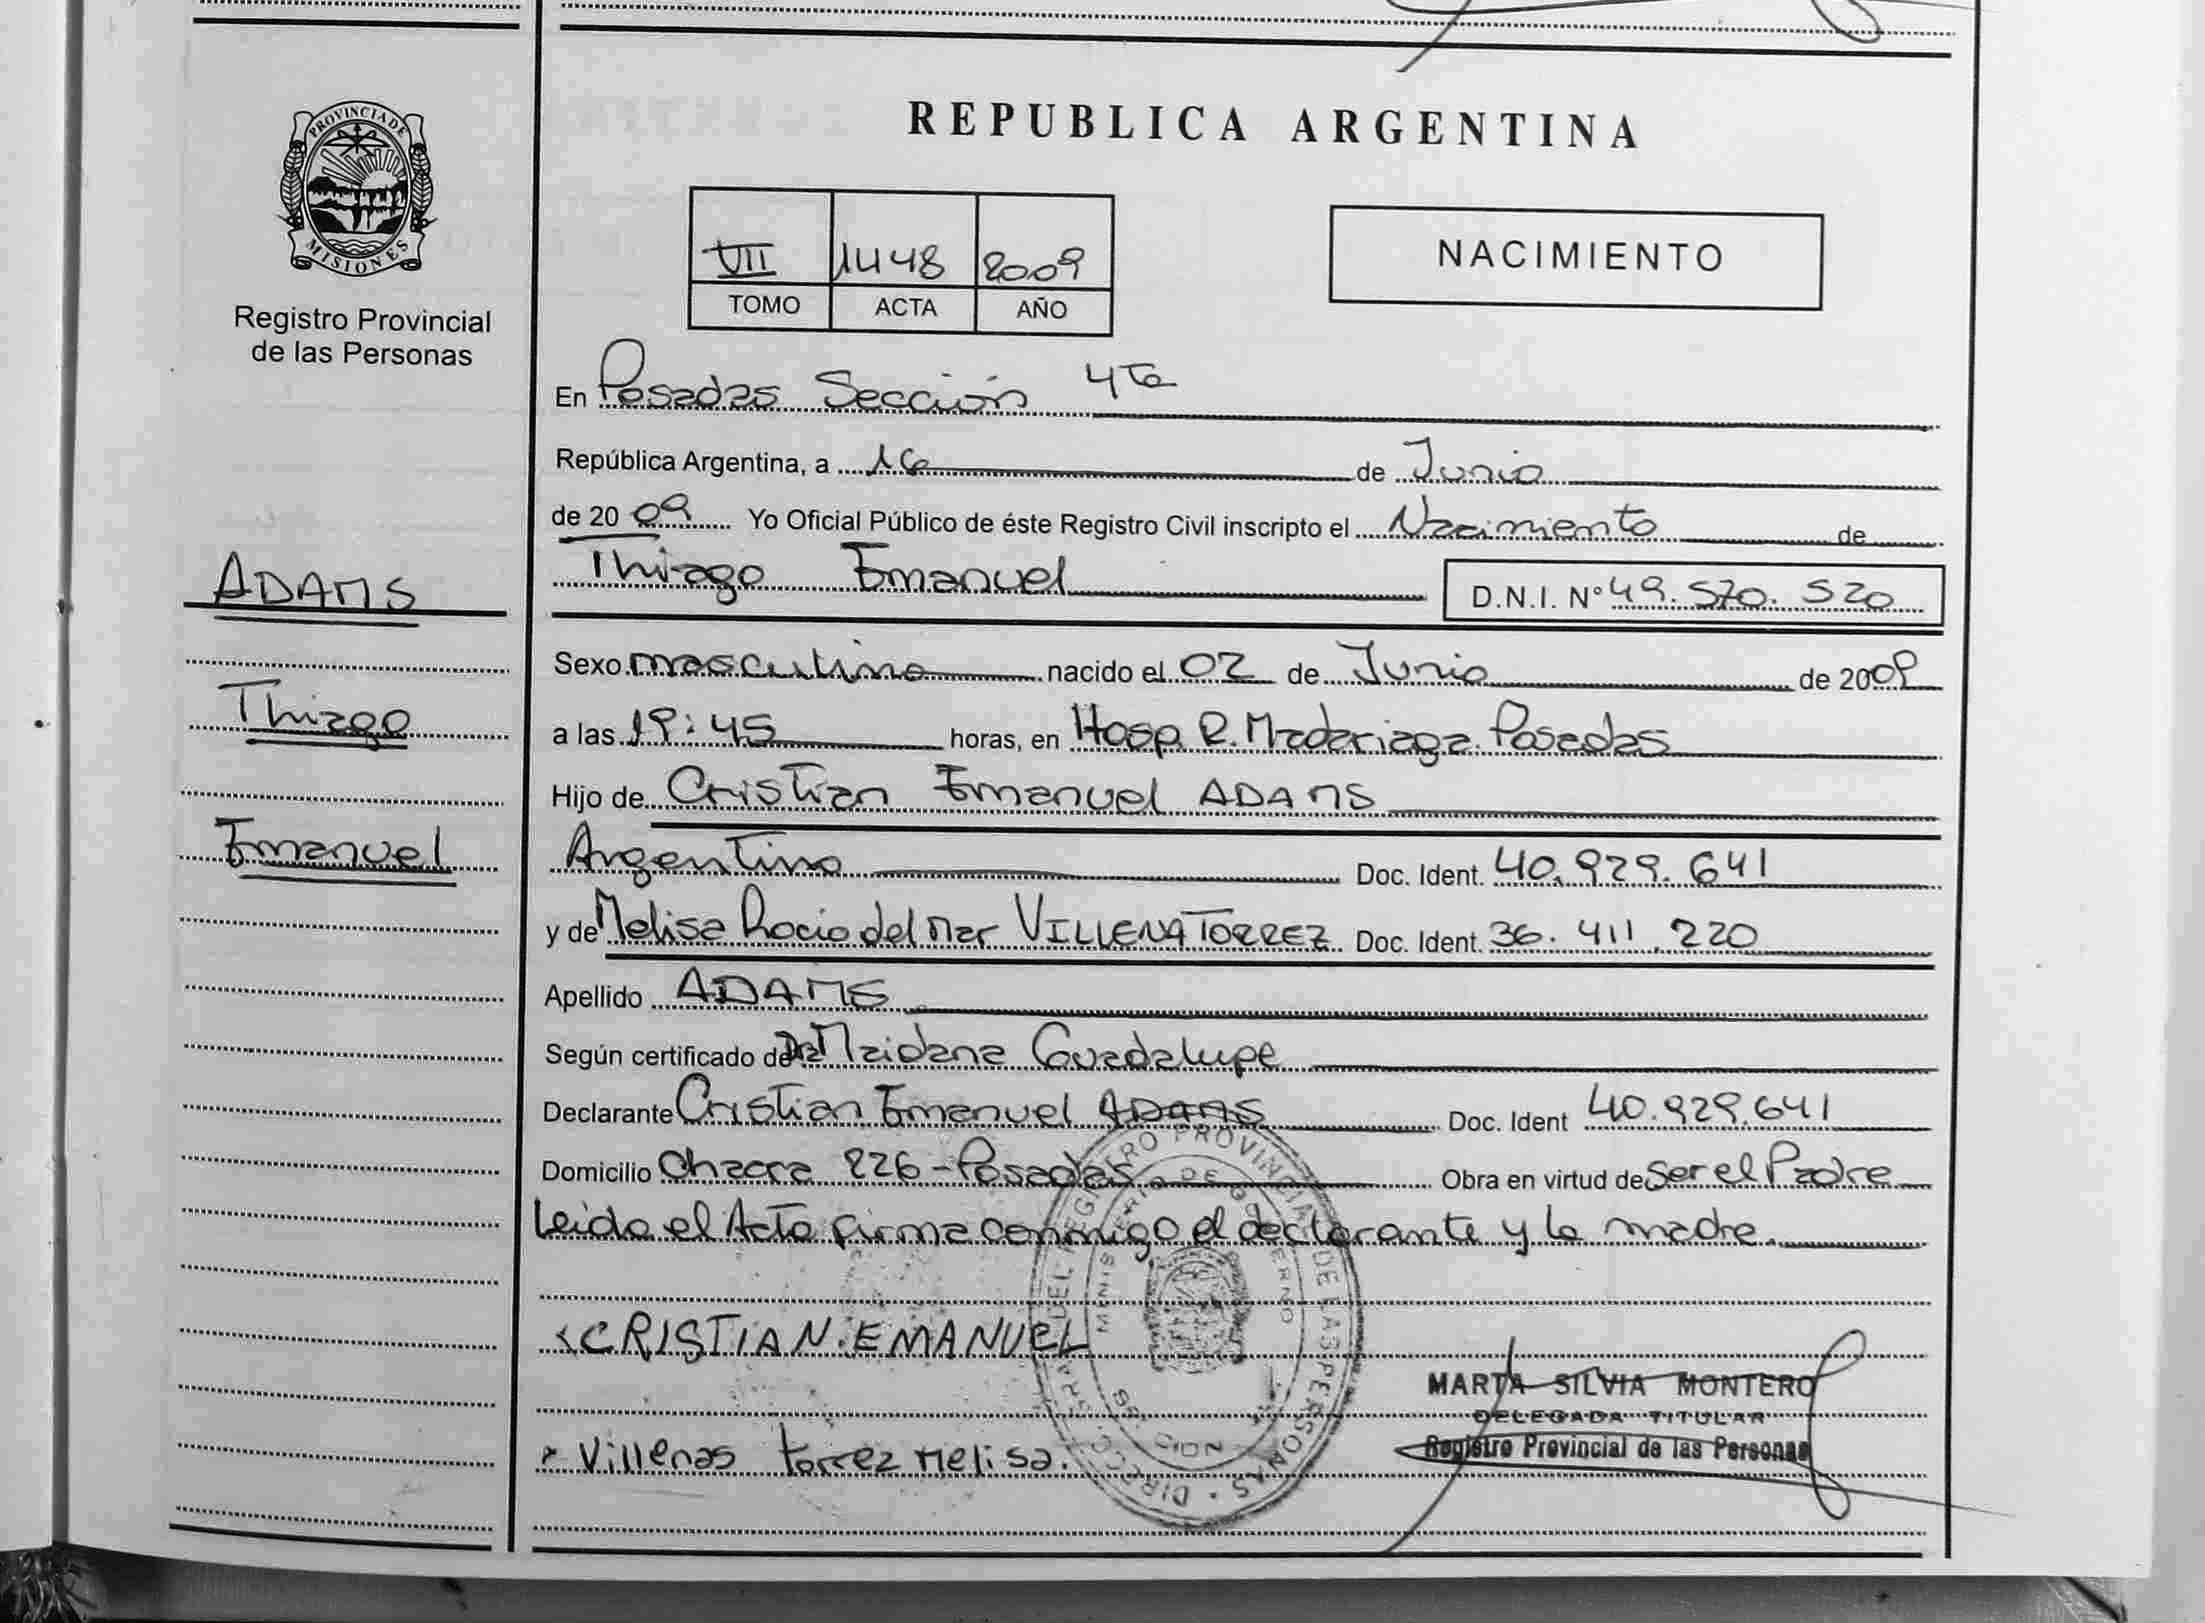 PROVINCIA DE
MISIONES
Registro Provincial
de las Personas
REPUBLICA ARGENTINA
VII 1448 2009
TOMO ACTA AÑO
NACIMIENTO
En Posadas Sección 4ta
República Argentina, a 16 de Junio
de 2009 Yo Oficial Público de éste Registro Civil inscripto el Nacimiento de
ADAMS
Thiago Emanuel D.N.I. N° 49.570.520
Sexo masculino nacido el 02 de Junio de 2009
Thiago
a las 19:45 horas, en Hosp. R. Madariaga. Posadas
Hijo de Cristian Emanuel ADAMS
Emanuel
Argentino Doc. Ident. 40.929.641
y de Melisa Rocio del Mar VILLENA TORREZ Doc. Ident. 36.411.220
Apellido ADAMS
Según certificado de Dra Maidana Guadalupe
Declarante Cristian Emanuel ADAMS Doc. Ident 40.929.641
Domicilio Chacra 226 - Posadas Obra en virtud de ser el Padre
Leida el Acta firma conmigo el declarante y la madre.
CRISTIAN.EMANUEL
MARTA SILVIA MONTERO
DELEGADA TITULAR
Registro Provincial de las Personas
Villenas torrez Melisa.
REGISTRO PROVINCIAL DE LAS PERSONAS
MINISTERIO DE GOBIERNO